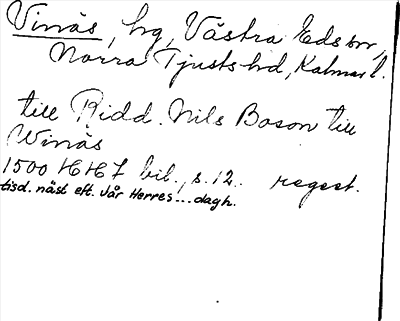 Vinäs, hg, Västra Edsbr,
Norra Tjusts hd, Kalmar l.
till Ridd. Nils Boson till
Winäs
1500 HH 7 bil., s. 12. regest.
tisd. näst eft. Vår Herres...dagh.